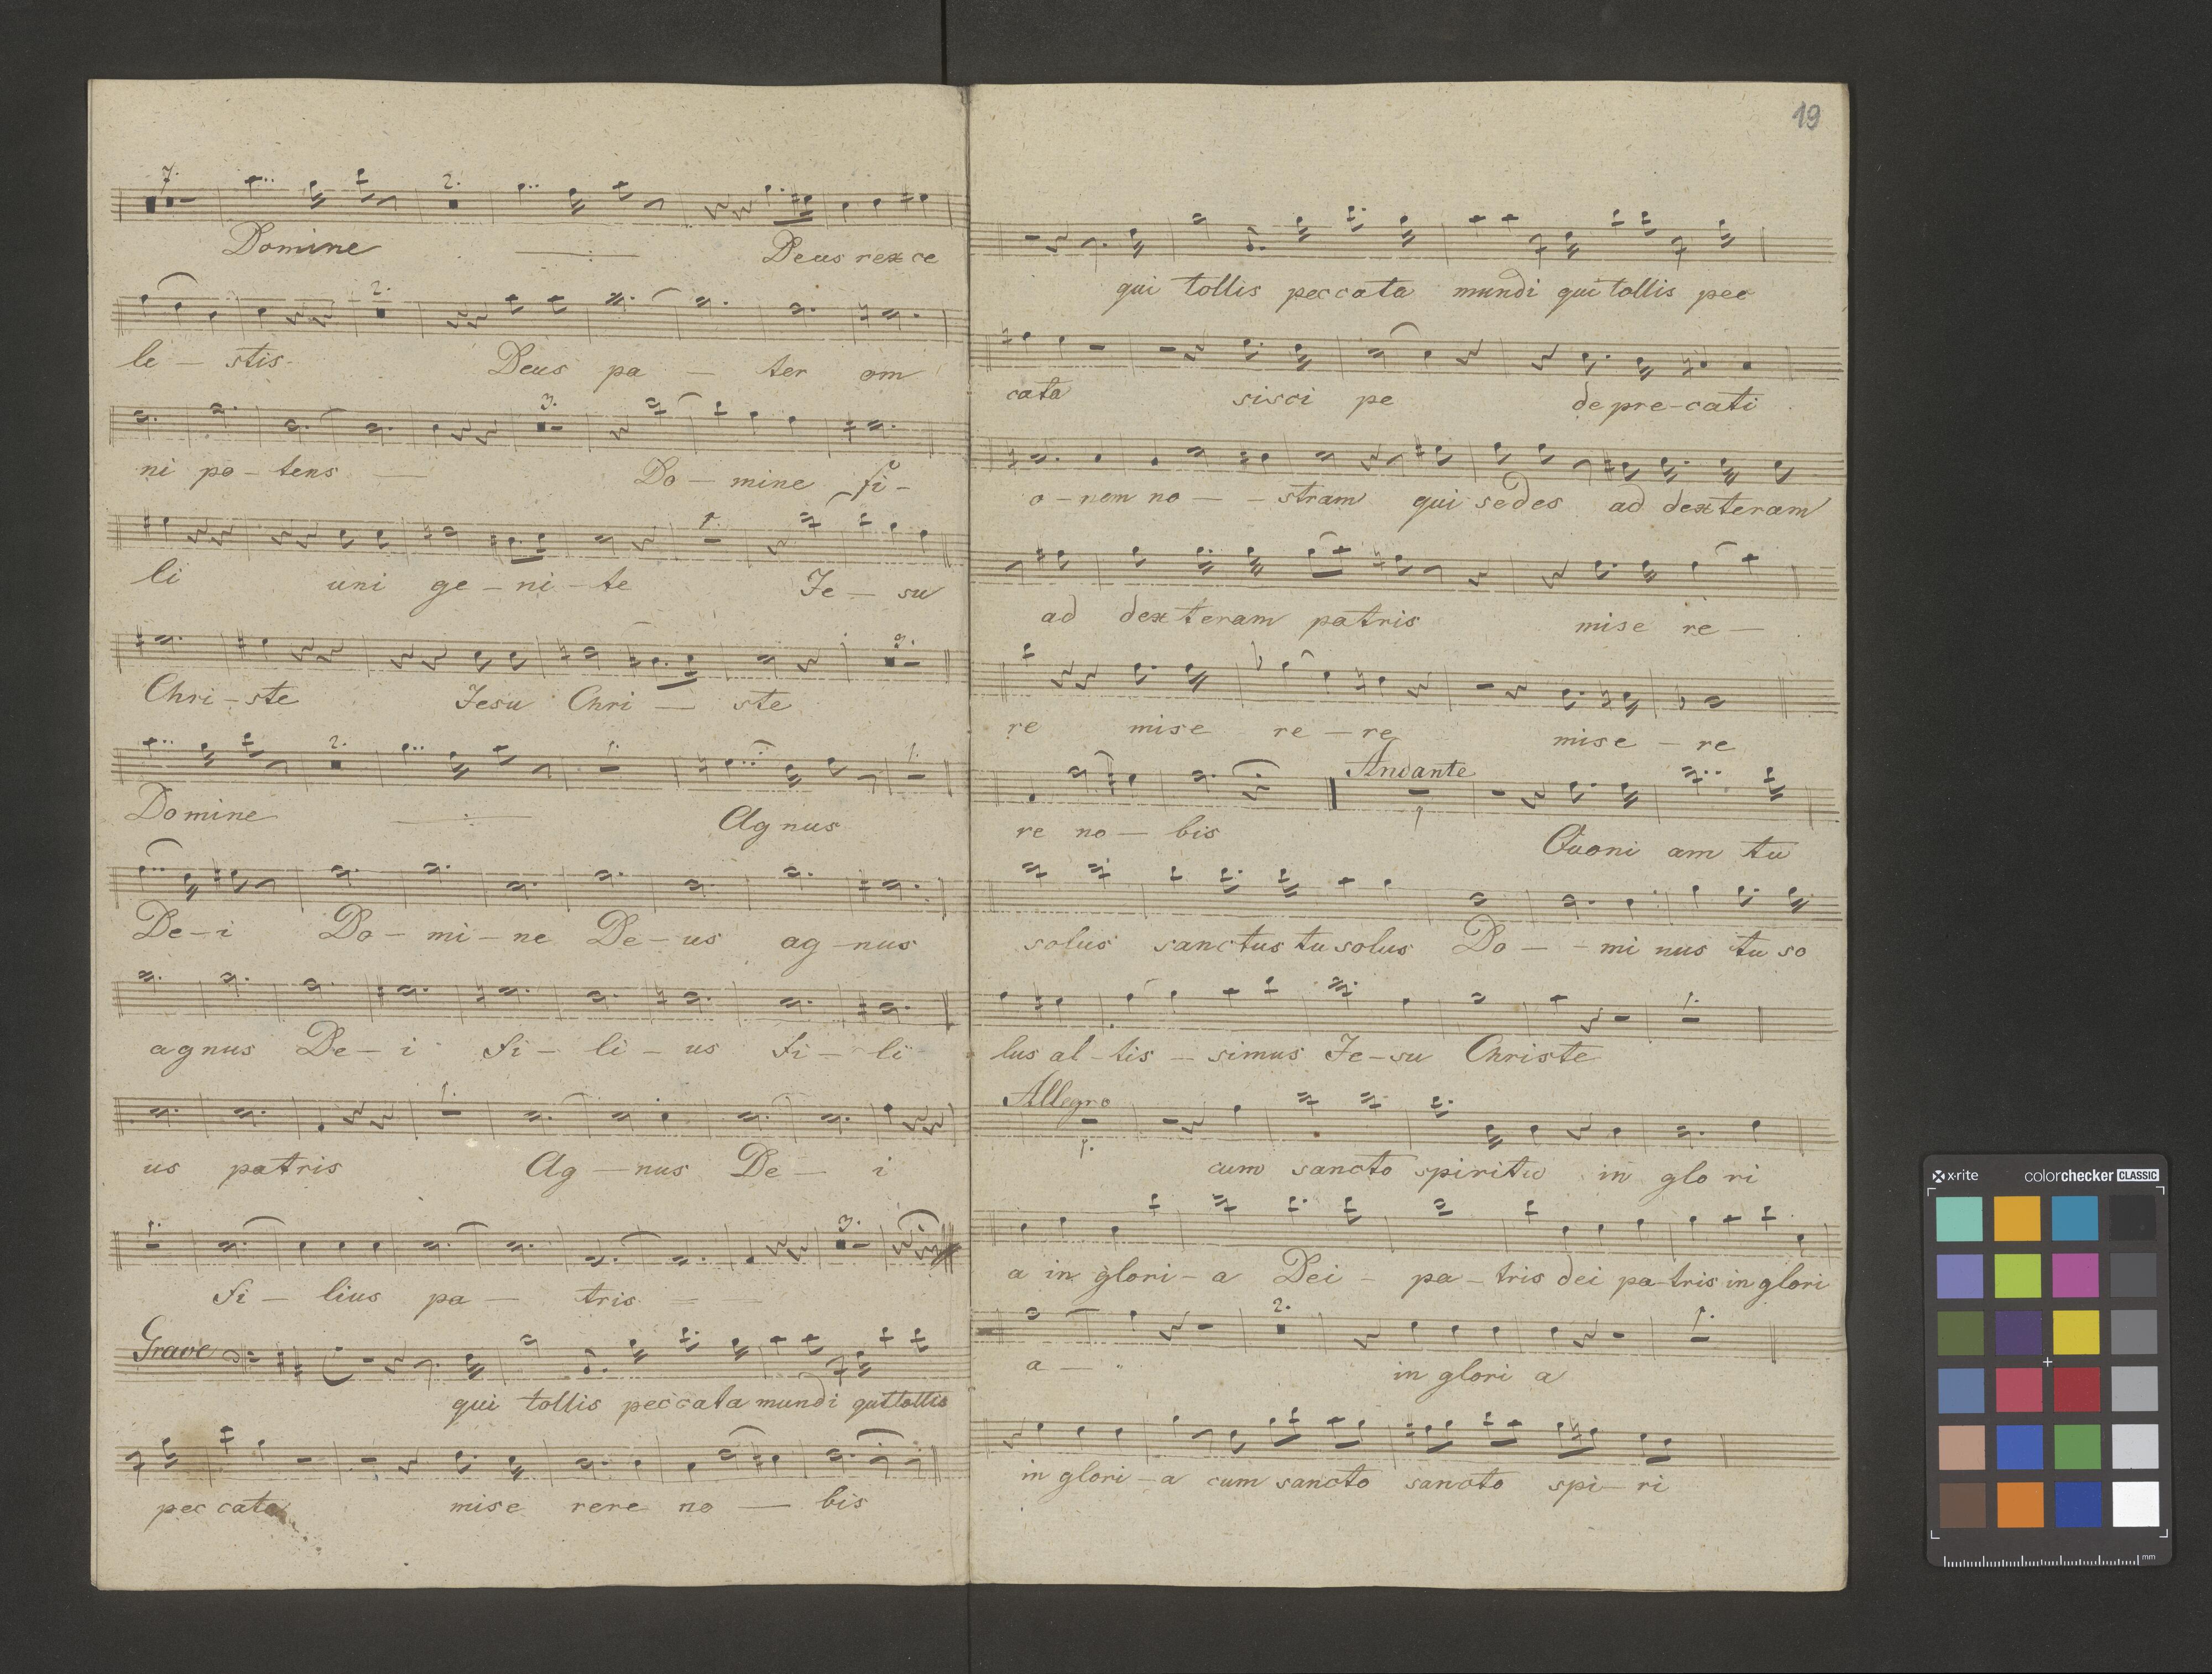 7.
2.
Domine Deus rex ce
2.
le - stis Deus pa - ter om
3.
ni po - tens - Do - mine fi -
1.
li uni ge - ni - te Je - su
3.
Chri - ste Jesu Chri - ste
2. 1. 1.
Domine Agnus
De - i Do - mi - ne De - us ag - nus
agnus De - i fi - li - us fi - li
1.
us patris Ag - nus De - i
1. 3.
fi - lius pa - tris
Grave
qui tollis peccata mundi qui tollis
pec cata mise rere no - bis
19
qui tollis peccata mundi qui tollis pec
cata sisci pe depre - cati
o - nem no - - stram qui sedes ad dexteram
ad dexteram patris mise re -
re mise re - re mise - re
Andante
1
re no - bis Quoni am tu
solus sanctus tu solus Do - - mi nus tu so
1.
lus al - tis - simus Je - su Christe
Allegro
1.
cum sancto spiritu in glo ri
a in glori - a Dei - pa - tris dei pa - tris in glori
2. 1.
a - in glori a
in glori - a cum sancto sancto spi - ri
x-rite colorchecker CLASSIC
mm